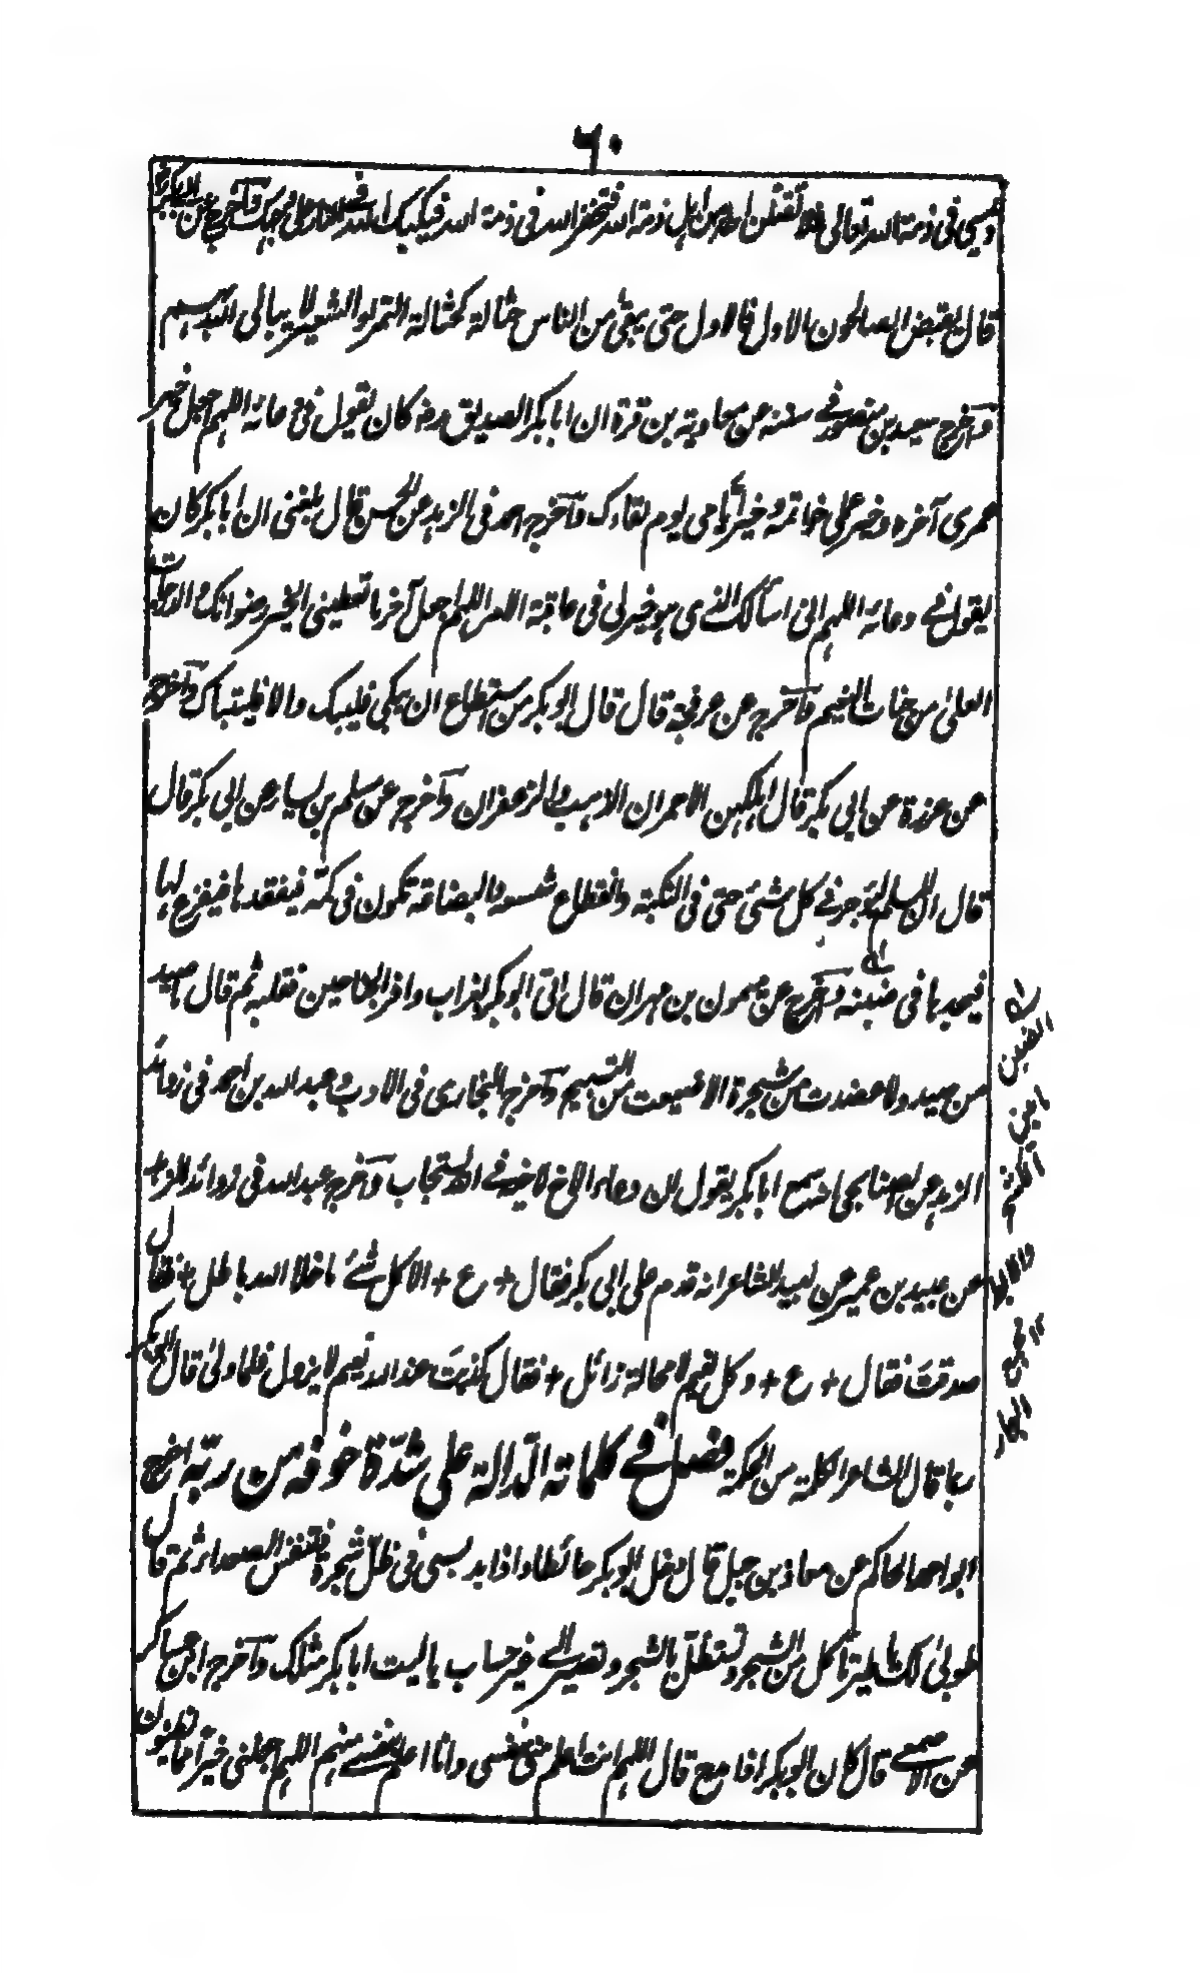 ٦٠
ويمسي في ذمة الله تعالى فلا تقتلن احدا من اهل ذمة الله فتخفر الله في ذمة الله فيكبك الله في النار على وجهك وآخرج عن ابي بكر
قال يقبض الصالحون الاول فالاول حتى يبقى من الناس حثالة كحثالة التمر او الشعير لا يبالي الله بهم
وآخرج سعيد بن منصور في سننه عن معاوية بن قرة ان ابا بكر الصديق رضه كان يقول في دعائه اللهم اجعل خير
عمري آخره وخير عملي خواتمه وخير ايامي يوم لقاءك وآخرج احمد في الزهد عن الحسن قال بلغني ان ابا بكر كان
يقول في دعائه اللهم اني اسألك الذي هو خير لي في عاقبة الامر اللهم اجعل آخر ما تعطيني الخير رضوانك والدرجات
العلى من جنات النعيم وآخرج عن عرفجة قال قال ابو بكر من استطاع ان يبكي فليبك والا فليتباك وآخرج
عن عزرة عن ابي بكر قال اهلكهن الاحمران الذهب والزعفران وآخرج عن مسلم بن يسار عن ابي بكر قال
قال ان المسلم ليوجر في كل شئ حتى في النكبة وانقطاع شسعه والبضاعة تكون في كمه فيفقدها فيفزع لها
فيجدها في ضبنه وآخرج عن ميمون بن مهران قال اتي ابو بكر بغراب وافر الجناحين فقلبه ثم قال ما صيد
من صيد ولا عضدت من شجرة الا ضيعت من التسبيح وآخرج البخاري في الادب وعبد الله بن احمد في زوائد
الزهد عن الصنابحي انه سمع ابا بكر يقول ان دعاء الاخ لاخيه في الله يستجاب وآخرج عبد الله في زوائد الزهد
عن عبيد بن عمير عن لبيد الشاعر انه قدم على ابي بكر فقال + ع + الا كل شئ ما خلا الله باطل + فقال
صدقت فقال + ع + وكل نعيم لا محالة زائل + فقال كذبت عند الله نعيم لا يزول فلما ولى قال ابو بكر
ربما قال الشاعر الكلمة من الحكمة فصل في كلماته الدالة على شدة خوفه من ربه اخرج
ابو احمد الحاكم عن معاذ بن جبل قال دخل ابو بكر حائطا واذا بدبسي في ظل شجرة فتنفس الصعداء ثم قال
طوبى لك يا طير تاكل من الشجر وتستظل بالشجر وتصير الى غير حساب يا ليت ابا بكر مثلك وآخرج ابن عساكر
عن الاصمعي قال كان ابو بكر اذا مدح قال اللهم انت اعلم مني بنفسي وانا اعلم بنفسي منهم اللهم اجعلني خيرا مما يظنون